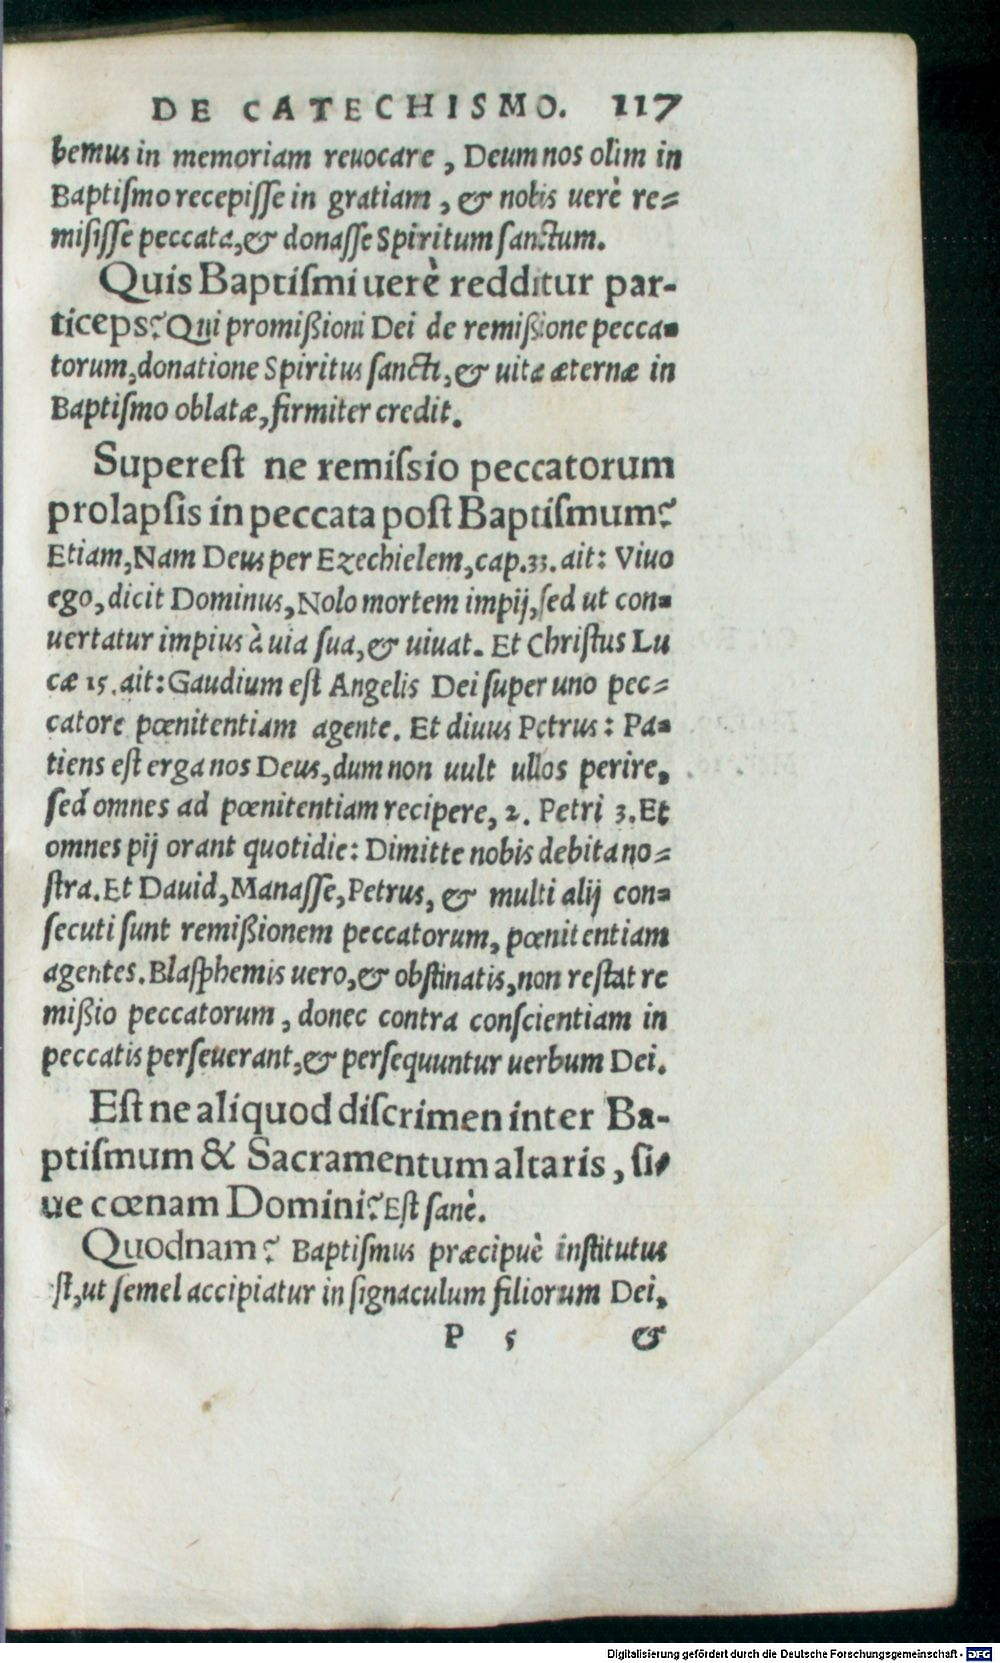 DE CATECHISMO. 117
bemus in memoriam reuocare, Deum nos olim in
Baptiſmo recepiſſe in gratiam, & nobis uerè re=
miſiſſe peccata, & donaſſe Spiritum ſanctum.
Quis Baptiſmi uerè redditur par-
ticeps? Qui promißioni Dei de remißione pecca=
torum, donatione Spiritus ſancti, & uitæ æternæ in
Baptiſmo oblatæ, firmiter credit.
Supereſt ne remiſsio peccatorum
prolapſis in peccata poſt Baptiſmum?
Etiam, Nam Deus per Ezechielem, cap. 33. ait: Viuo
ego, dicit Dominus, Nolo mortem impij, ſed ut con=
uertatur impius à uia ſua, & uiuat. Et Chriſtus Lu
cæ 15. ait: Gaudium eſt Angelis Dei ſuper uno pec=
catore pœnitentiam agente. Et diuus Petrus: Pa=
tiens eſt erga nos Deus, dum non uult ullos perire,
ſed omnes ad pœnitentiam recipere, 2. Petri 3. Et
omnes pij orant quotidie: Dimitte nobis debita no=
ſtra. Et Dauid, Manaſſe, Petrus, & multi alij con=
ſecuti ſunt remißionem peccatorum, pœnitentiam
agentes. Blaſphemis uero, & obſtinatis, non reſtat re
mißio peccatorum, donec contra conſcientiam in
peccatis perſeuerant, & perſequuntur uerbum Dei.
Eſt ne aliquod diſcrimen inter Ba-
ptiſmum & Sacramentum altaris, ſi-
ue cœnam Domini? Eſt ſanè.
Quodnam? Baptiſmus præcipuè inſtitutus
ſt, ut ſemel accipiatur in ſignaculum filiorum Dei,
P 5 &
Digitalisierung gefördert durch die Deutsche Forschungsgemeinschaft - DFG